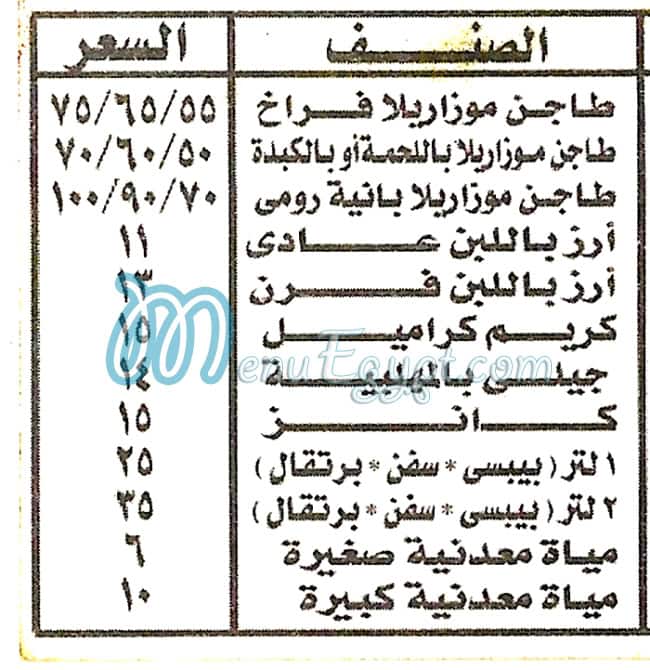 الصنف السعر
طاجن موزاريلا فراخ ٧٥/٦٥/٥٥
طاجن موزاريلا باللحمة أو بالكبدة ٧٠/٦٠/٥٠
طاجن موزاريلا بانية رومى ١٠٠/٩٠/٧٠
أرز باللبن عادى ١١
أرز باللبن فرن ١٣
كريم كراميل ١٥
جيلى بالمهلبية ١٤
كانز ١٥
١ لتر (بيبسى * سفن * برتقال) ٢٥
٢ لتر (بيبسى * سفن * برتقال) ٣٥
مياة معدنية صغيرة ٦
مياة معدنية كبيرة ١٠
MenuEgypt.com